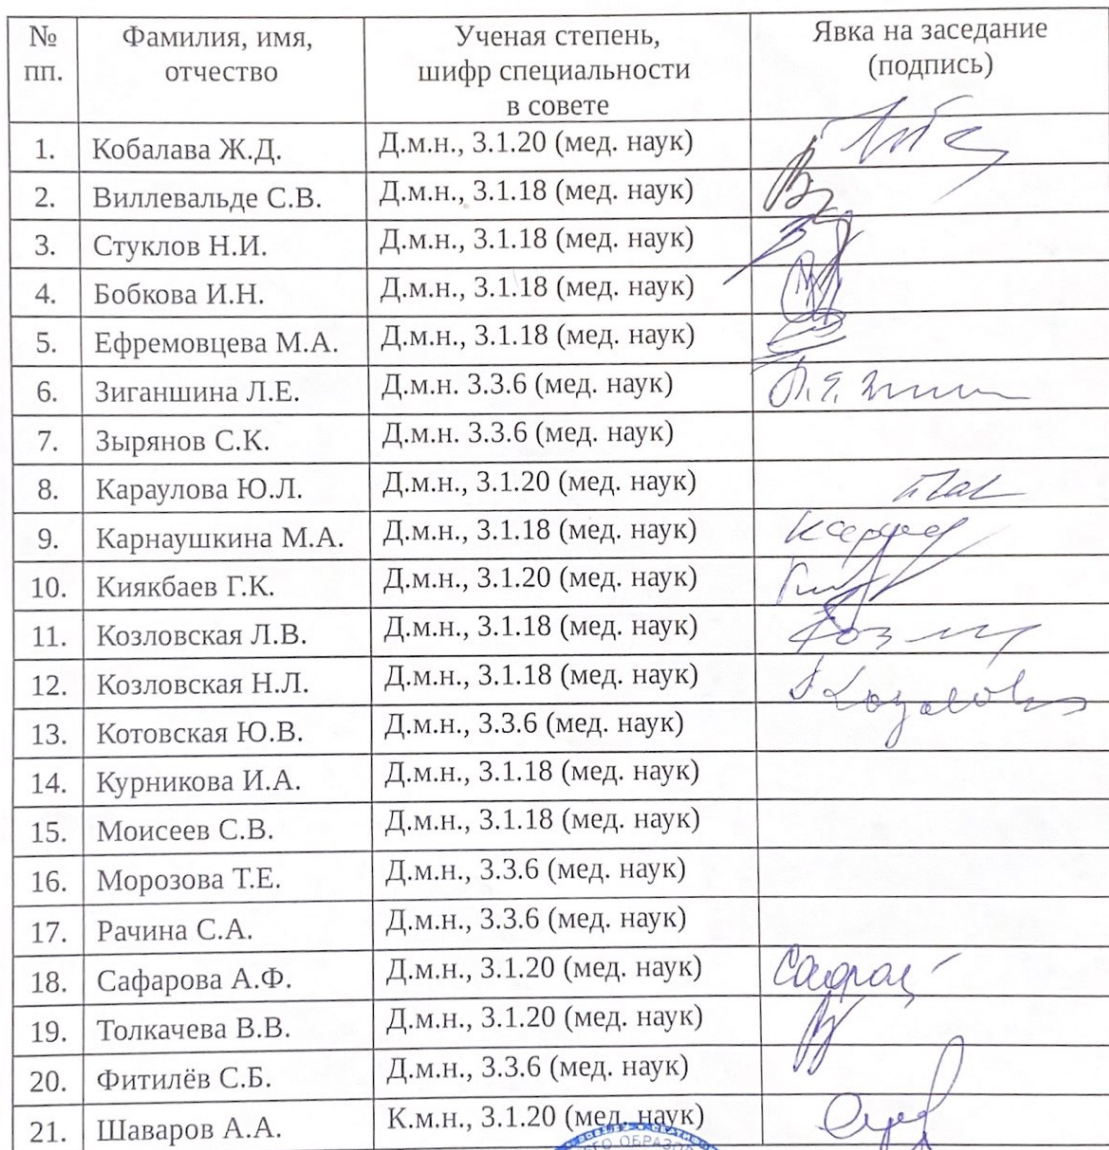 № пп. Фамилия, имя, отчество Ученая степень, шифр специальности в совете Явка на заседание (подпись)
1. Кобалава Ж.Д. Д.м.н., 3.1.20 (мед. наук)
2. Виллевальде С.В. Д.м.н., 3.1.18 (мед. наук)
3. Стуклов Н.И. Д.м.н., 3.1.18 (мед. наук)
4. Бобкова И.Н. Д.м.н., 3.1.18 (мед. наук)
5. Ефремовцева М.А. Д.м.н., 3.1.18 (мед. наук)
6. Зиганшина Л.Е. Д.м.н. 3.3.6 (мед. наук)
7. Зырянов С.К. Д.м.н. 3.3.6 (мед. наук)
8. Караулова Ю.Л. Д.м.н., 3.1.20 (мед. наук)
9. Карнаушкина М.А. Д.м.н., 3.1.18 (мед. наук)
10. Киякбаев Г.К. Д.м.н., 3.1.20 (мед. наук)
11. Козловская Л.В. Д.м.н., 3.1.18 (мед. наук)
12. Козловская Н.Л. Д.м.н., 3.1.18 (мед. наук)
13. Котовская Ю.В. Д.м.н., 3.3.6 (мед. наук)
14. Курникова И.А. Д.м.н., 3.1.18 (мед. наук)
15. Моисеев С.В. Д.м.н., 3.1.18 (мед. наук)
16. Морозова Т.Е. Д.м.н., 3.3.6 (мед. наук)
17. Рачина С.А. Д.м.н., 3.3.6 (мед. наук)
18. Сафарова А.Ф. Д.м.н., 3.1.20 (мед. наук)
19. Толкачева В.В. Д.м.н., 3.1.20 (мед. наук)
20. Фитилёв С.Б. Д.м.н., 3.3.6 (мед. наук)
21. Шаваров А.А. К.м.н., 3.1.20 (мед. наук)